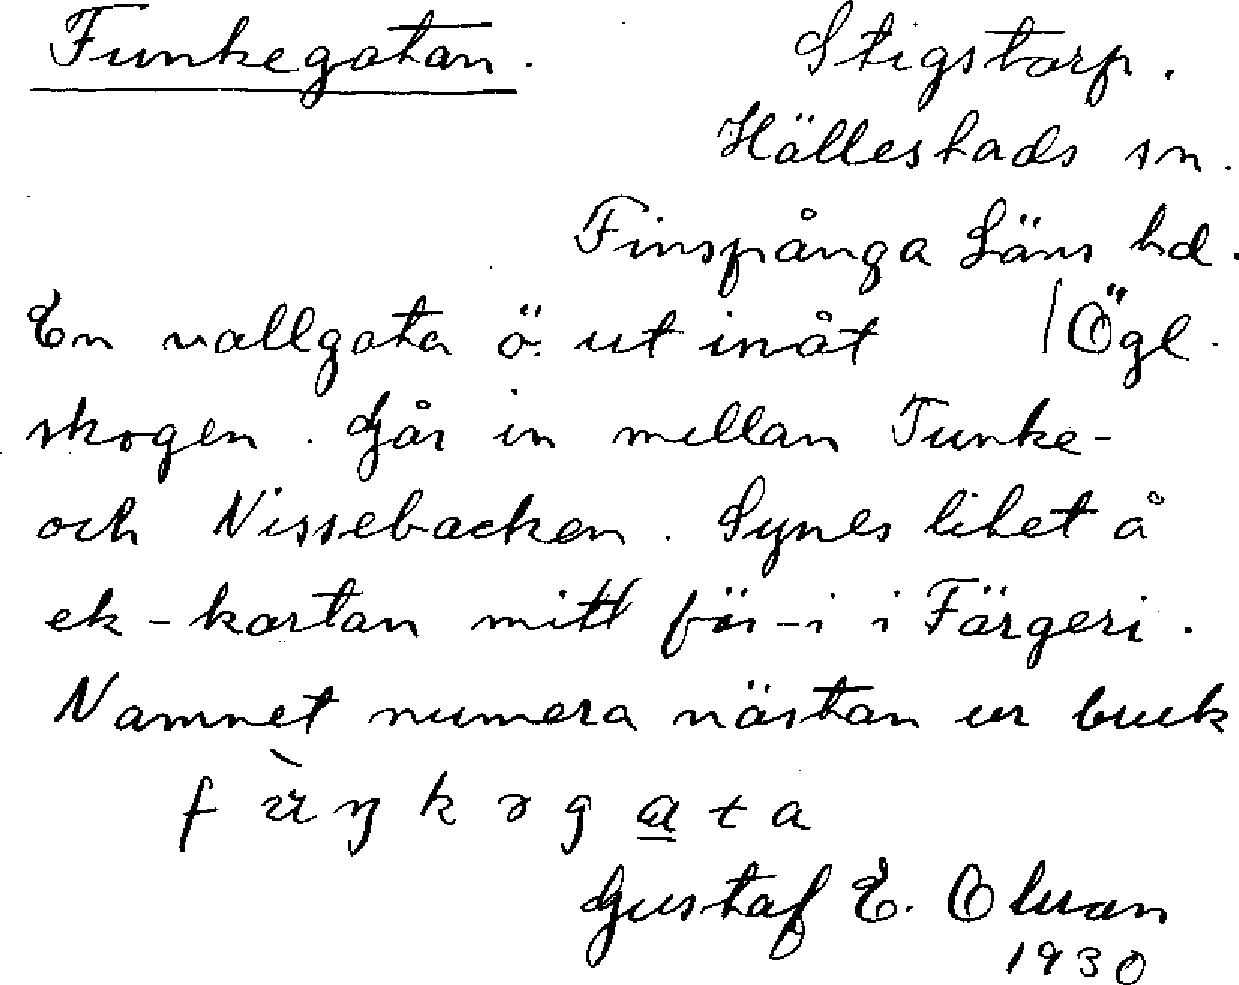 Funkegatan.
Stigstorp.
Hällestads sn.
Finspånga Läns hd.
En vallgata ö. ut inåt /Ögl.
skogen. Går in mellan Funke-
och Nissebacken. Synes litet å
ek-kartan mitt för -i i Färgeri.
Namnet numera nästan ur bruk
f ŋ k ə g a t a
Gustaf E. Olsson
1930